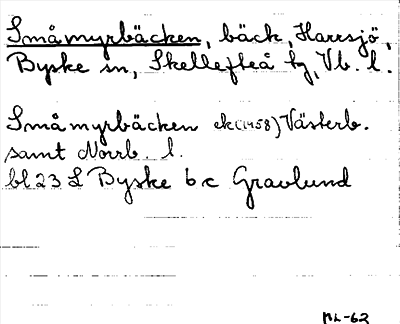 Småmyrbäcken, bäck, Harrsjö,
Byske sn, Skellefteå tg, Vb. l.
Småmyrbäcken ek (1958) Västerb.
samt Norrb. l.
bl 23 L Byske b c Gravlund
ML-62